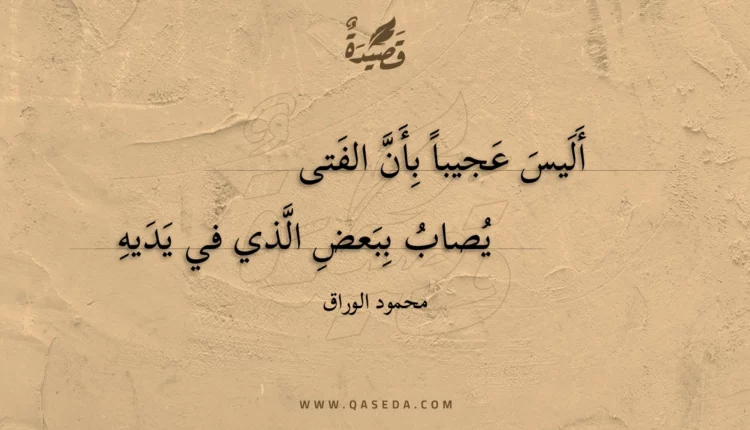 قَصِيْدَةٌ
أَلَيسَ عَجيباً بِأَنَّ الفَتى
يُصابُ بِبَعضِ الَّذي في يَدَيهِ
محمود الوراق
WWW.QASEDA.COM